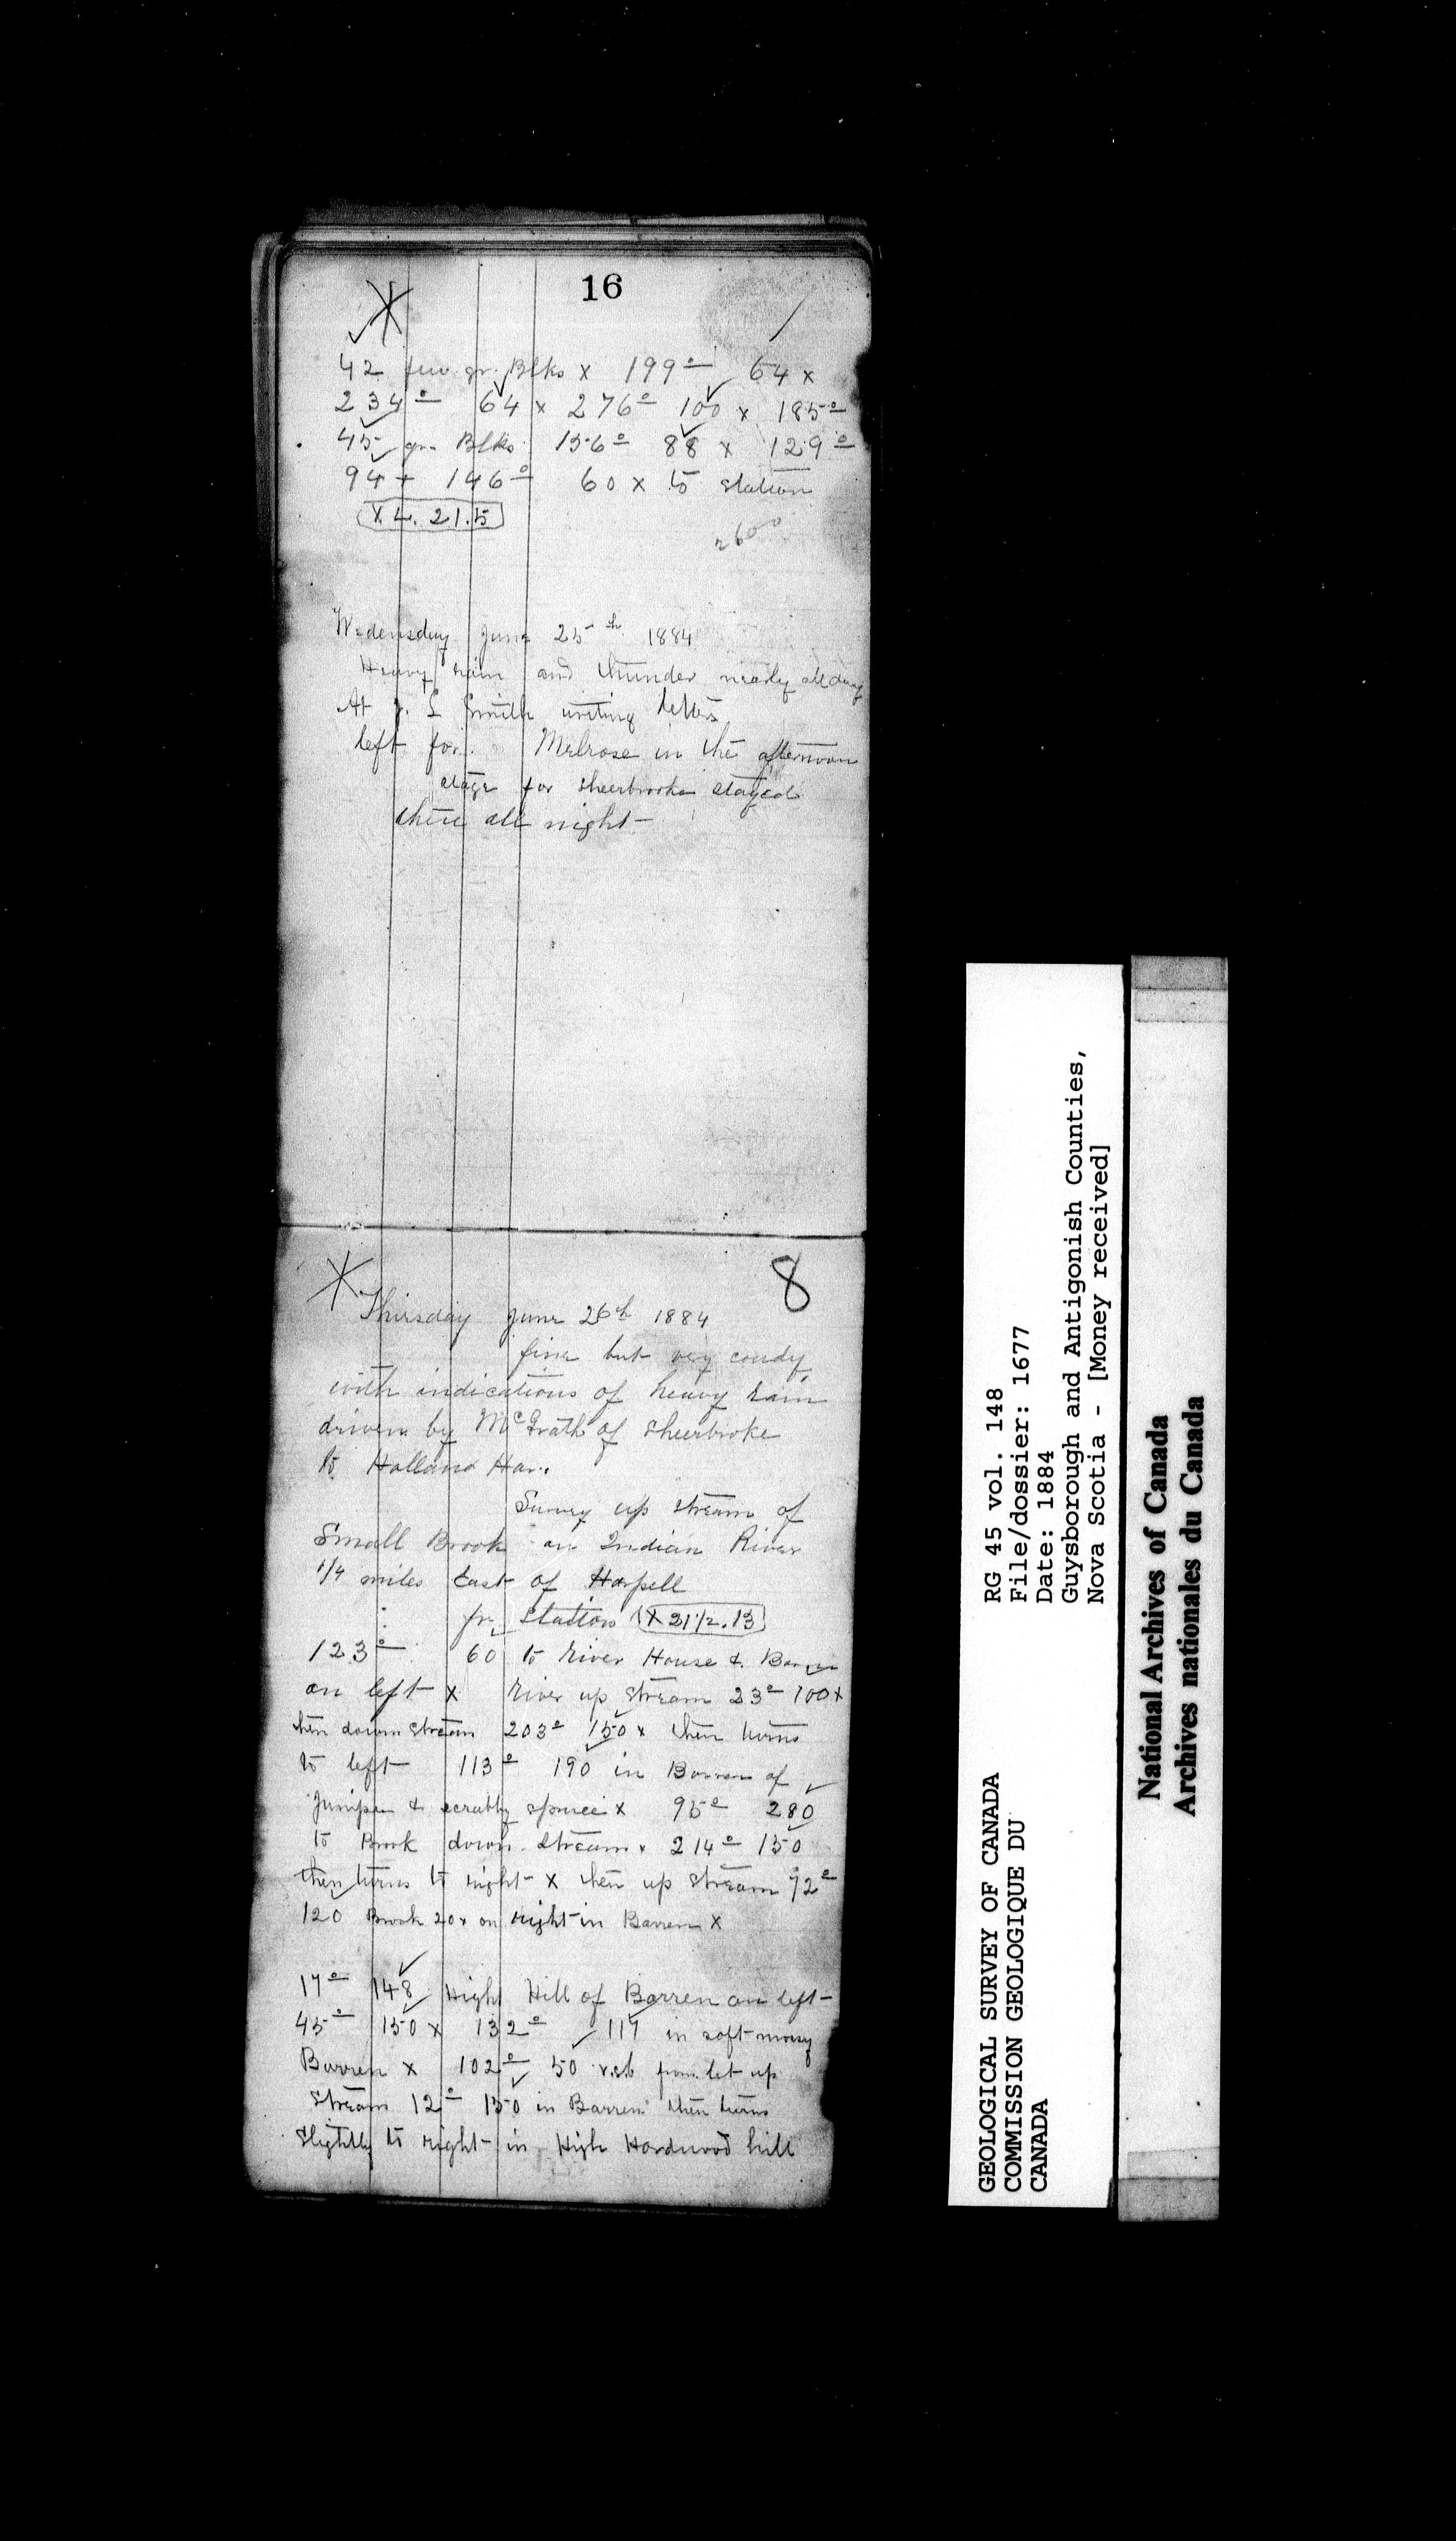 16
42 few gr. Blks x 199° 64 x
234° 64 x 276° 100 x 185°
45 gr. Blks 156° 88 x 129°
94 + 146° 60 x to station
X L. 21.5
2600
Wedensday June 25th 1884
Heavy rain and thunder nearly all day
At J. L Smith writing letters
left for Melrose in the afternoon
stage for Sheerbrooke stayed
there all night
8
Thirsday June 26th 1884
fine but very coudy
with indications of heavy rain
driven by McGrath of Sheerbroke
to Holland Har.
Survey up stream of
Small Brook on Indian River
1/4 miles East of Harpell
fr. Station X 21 1/2.13
123° 60 to River House & Barn
on left x River up stream 23° 100 x
then down stream 203° 150 x then turns
to left 113° 190 in Barren of
Juniper & scrubby spruce x 95° 280
to Brook down stream x 214° 150
then turns to right x then up stream 72°
120 Brook 20x on right in Barren x
17° 148 High Hill of Barren on left
45° 150 x 132° 117 in soft mossy
Barren x 102° 50 up
stream 12° 150 in Barren then turns
slightly to right in High Hardwood hill
RG 45 vol. 148
File/dossier: 1677
Date: 1884
Guysborough and Antigonish Counties,
Nova Scotia - [Money received]
GEOLOGICAL SURVEY OF CANADA
COMMISSION GEOLOGIQUE DU
CANADA
National Archives of Canada
Archives nationales du Canada